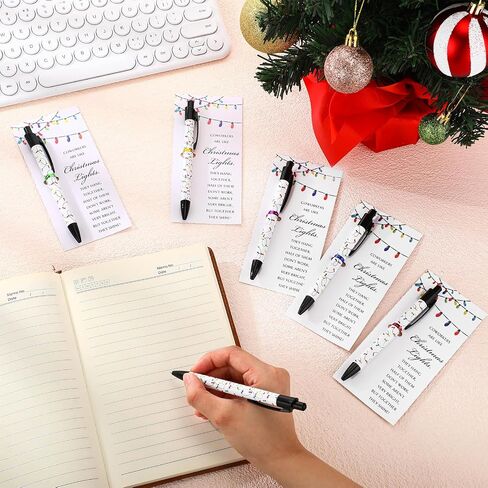 COWORKERS
ARE LIKE
Christmas
Lights.
THEY HANG
TOGETHER,
HALF OF THEM
DON'T WORK,
SOME AREN'T
VERY BRIGHT,
BUT TOGETHER
THEY SHINE!
COWORKERS
ARE LIKE
Christmas
Lights.
THEY HANG
TOGETHER,
HALF OF THEM
DON'T WORK,
SOME AREN'T
VERY BRIGHT,
BUT TOGETHER
THEY SHINE!
COWORKERS
ARE LIKE
Christmas
Lights.
THEY HANG
TOGETHER,
HALF OF THEM
DON'T WORK,
SOME AREN'T
VERY BRIGHT,
BUT TOGETHER
THEY SHINE!
COWORKERS
ARE LIKE
Christmas
Lights.
THEY HANG
TOGETHER,
HALF OF THEM
DON'T WORK,
SOME AREN'T
VERY BRIGHT,
BUT TOGETHER
THEY SHINE!
COWORKERS
ARE LIKE
Christmas
Lights.
THEY HANG
TOGETHER,
HALF OF THEM
DON'T WORK,
SOME AREN'T
VERY BRIGHT,
BUT TOGETHER
THEY SHINE!
Memo No.
Date
Memo No.
Date